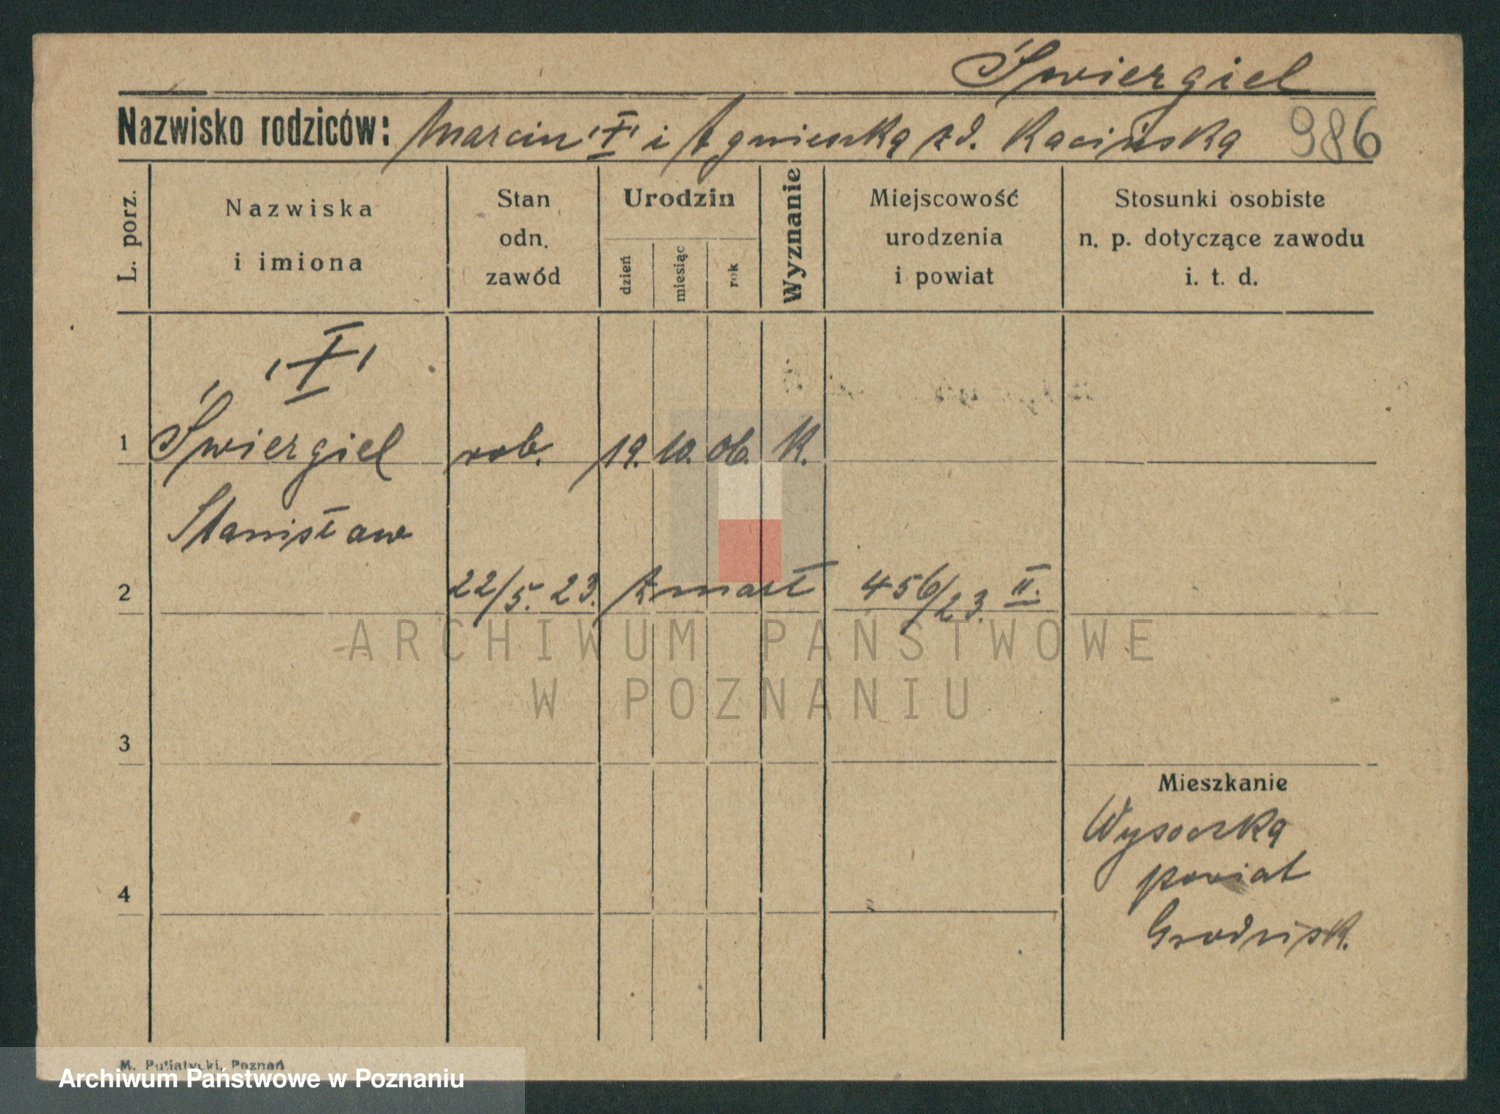 Świergiel
Nazwisko rodziców: Marcin i Agnieszka zd. Kacińska 986
L. porz. Nazwiska i imiona Stan odn. zawód Urodzin dzień miesiąc rok Wyznanie Miejscowość urodzenia i powiat Stosunki osobiste n. p. dotyczące zawodu i. t. d.
1 Świergiel rob. 19. 10. 06. K.
Stanisław
2 22/5. 23. Zmarł 456/23. II.
ARCHIWUM PAŃSTWOWE
W POZNANIU
3
Mieszkanie
Wysoczka
powiat
4
Grodzisk.
M. Putiatycki, Poznań
Archiwum Państwowe w Poznaniu